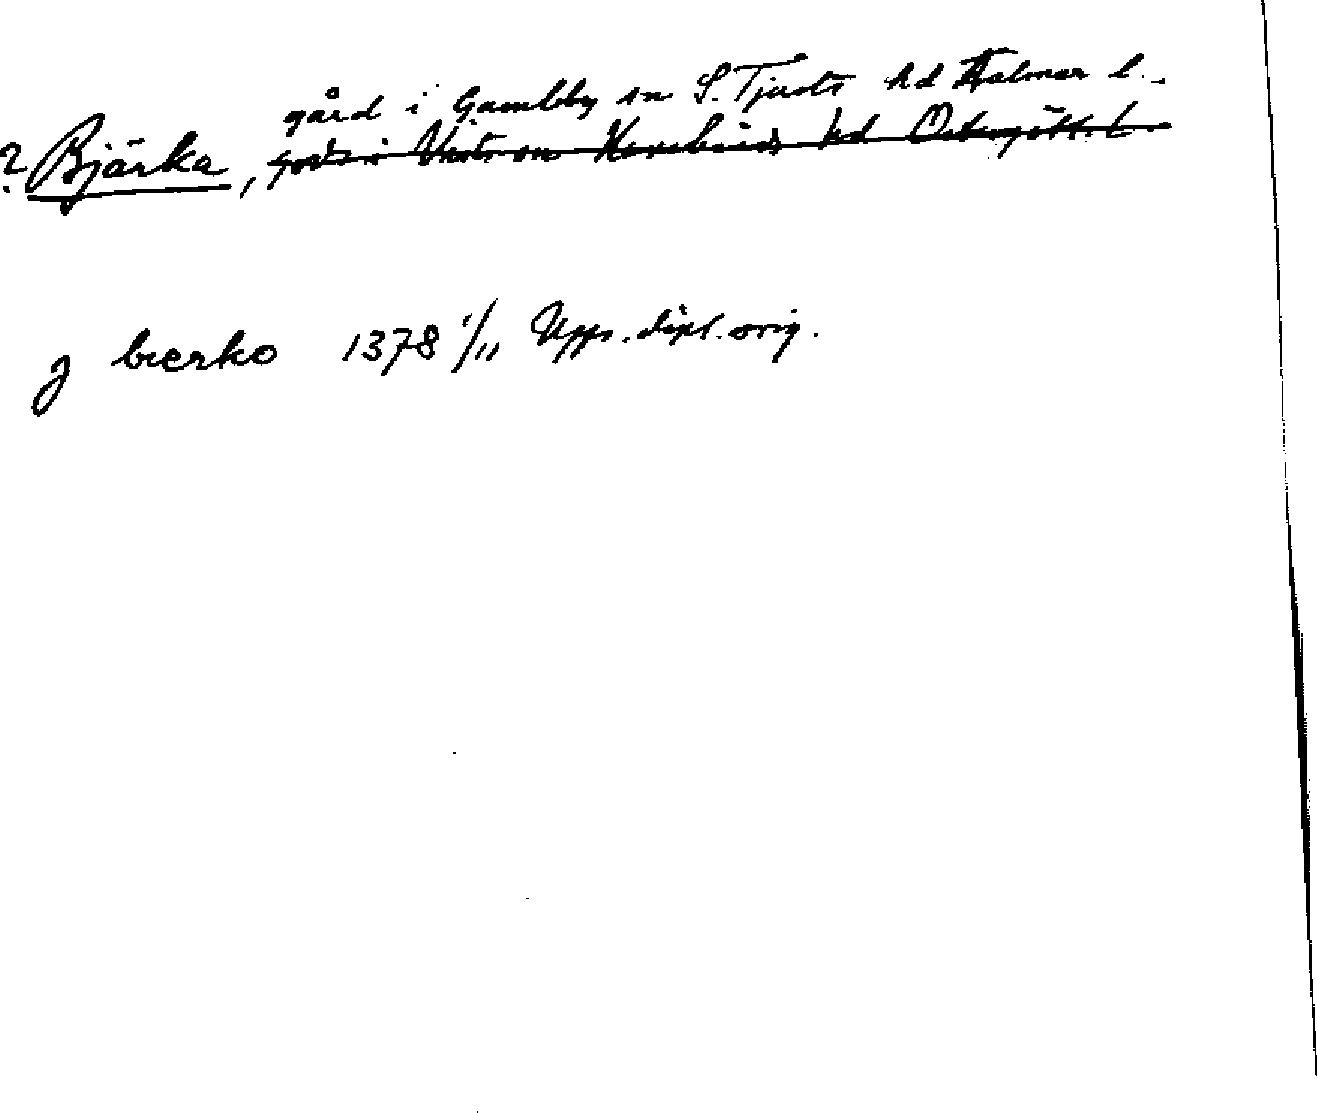 gård i Gamleby sn S. Tjusts hd Kalmar l.
? Bjärka, gods i Vists sn Hanekinds hd Östergötl. l.
J bierko 1378 1/11 Upps. dipl. orig.